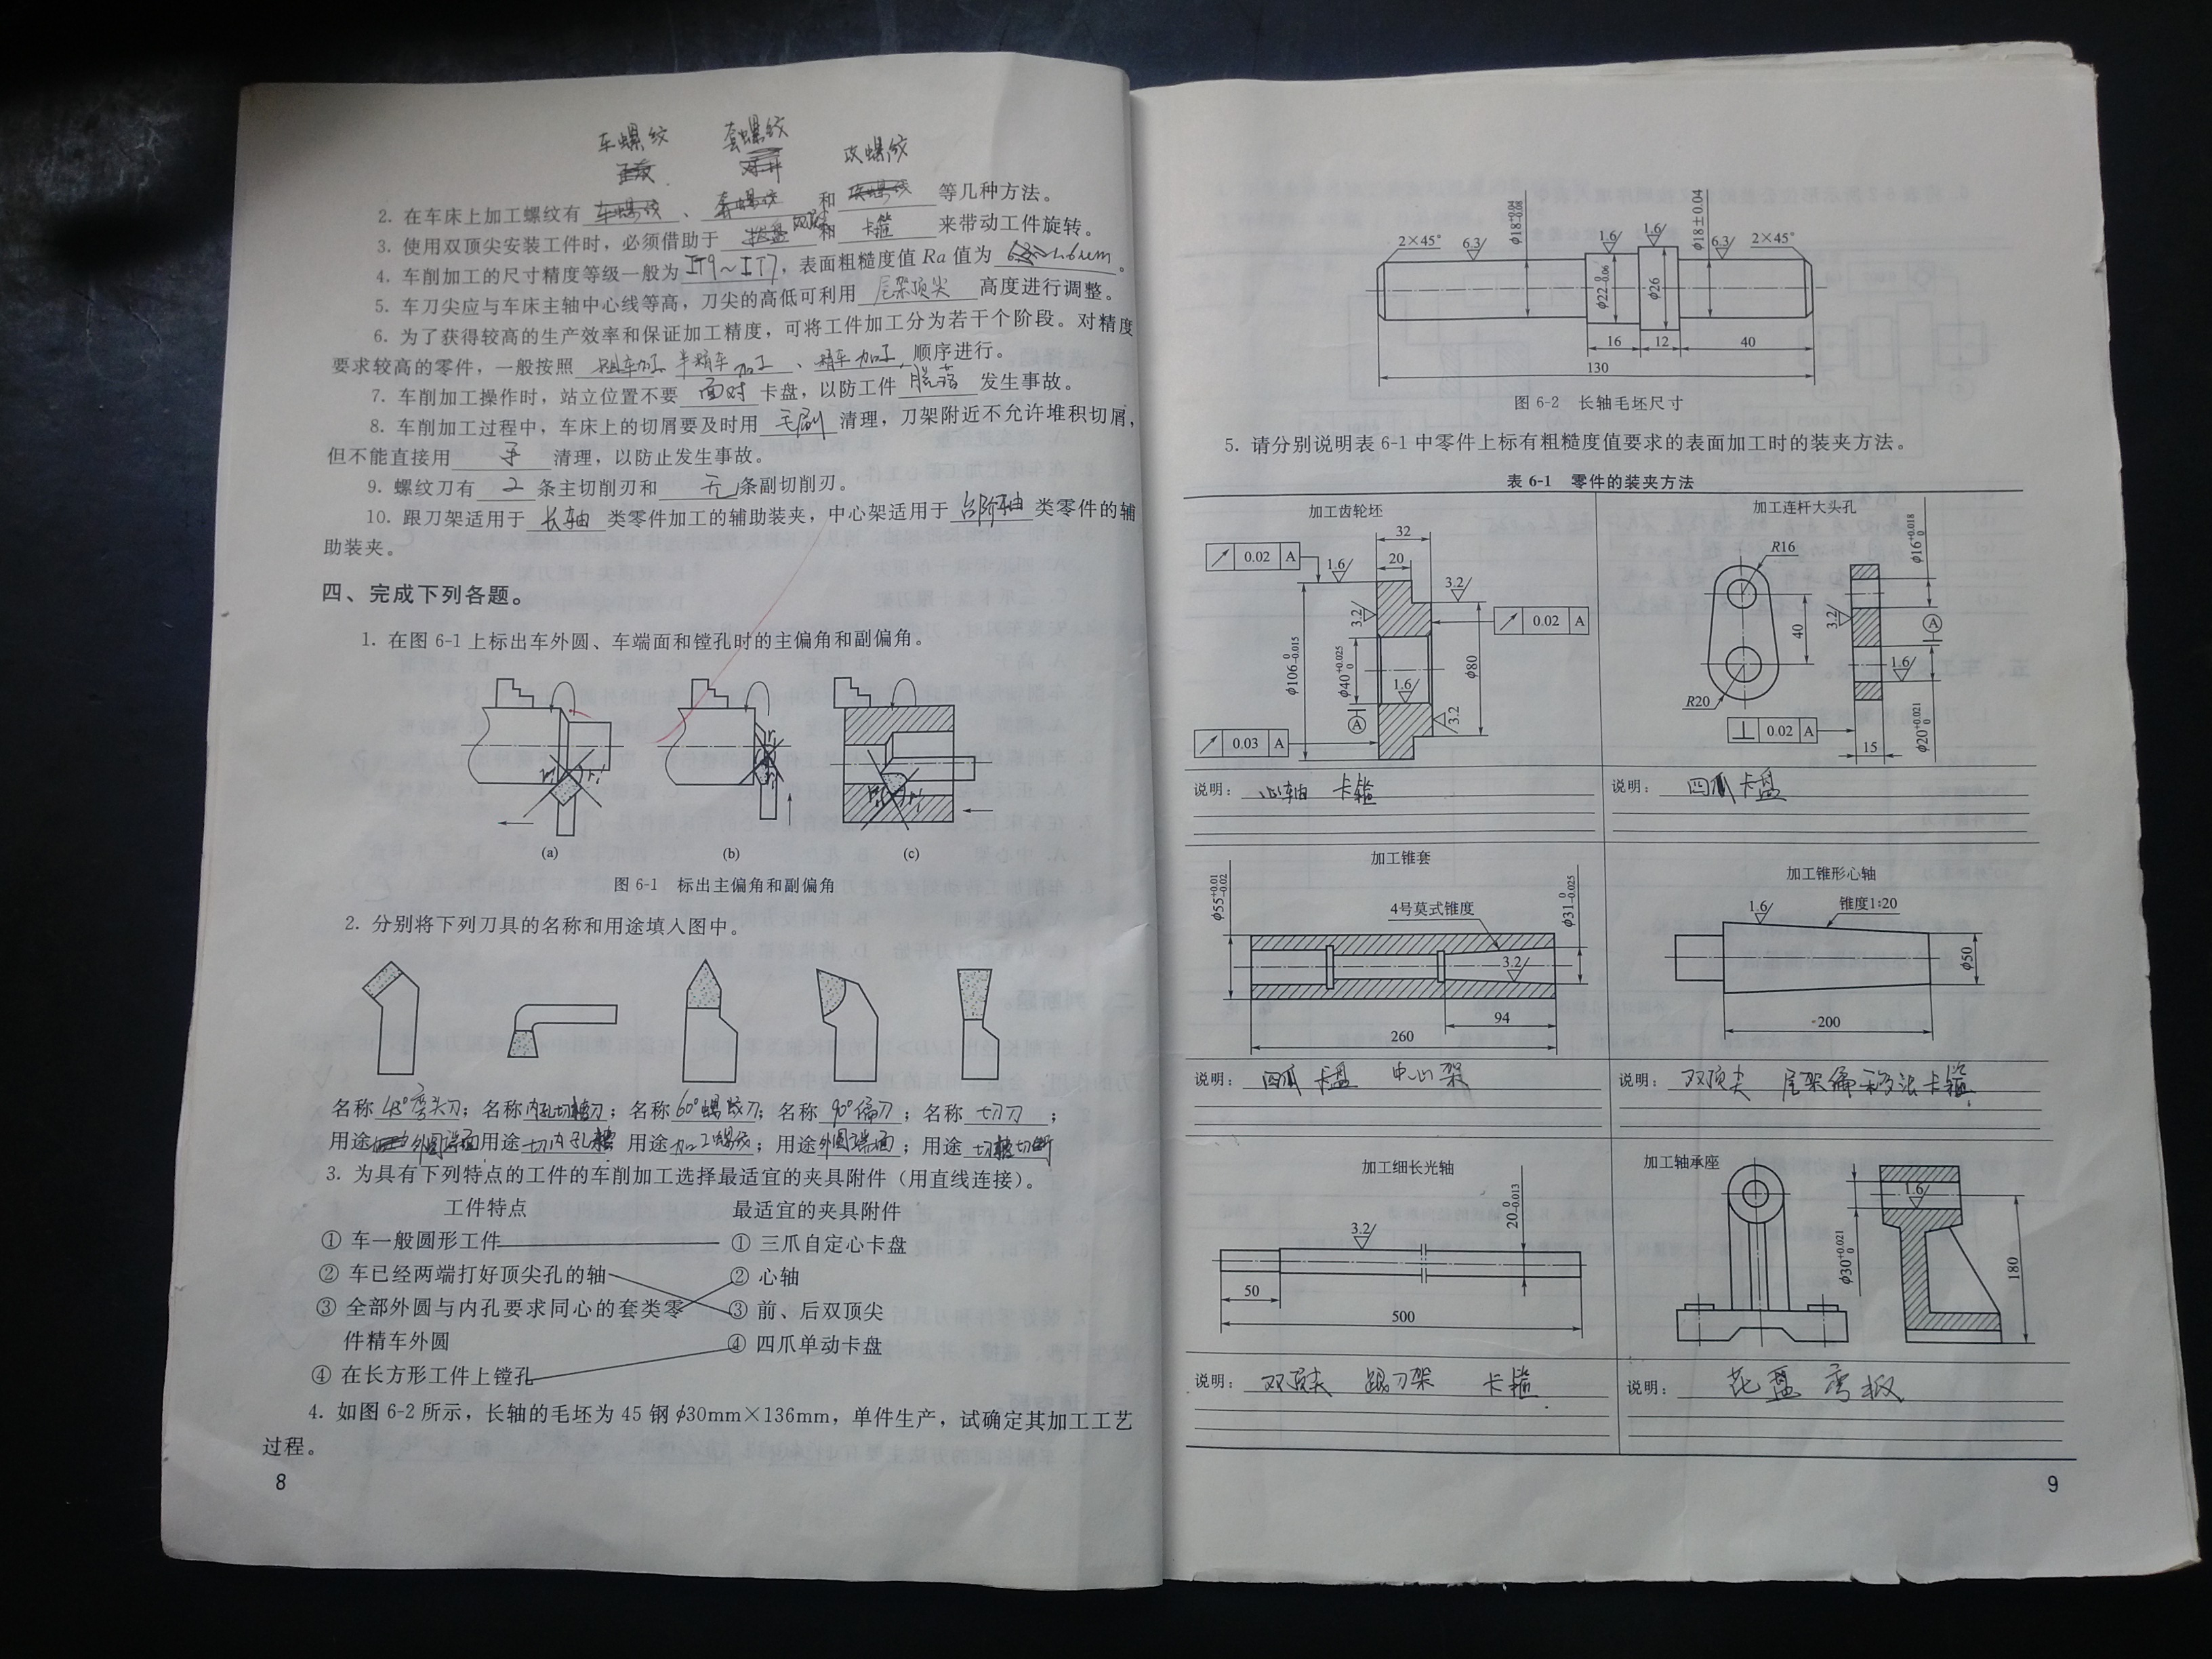 车螺纹 套螺纹 攻螺纹
2. 在车床上加工螺纹有 车螺纹 、 套螺纹 和 攻螺纹 等几种方法。
3. 使用双顶尖安装工件时，必须借助于 拨盘 和 卡箍 来带动工件旋转。
4. 车削加工的尺寸精度等级一般为 IT9～IT7 ，表面粗糙度值 Ra 值为 1.6um 。
5. 车刀尖应与车床主轴中心线等高，刀尖的高低可利用 尾架顶尖 高度进行调整。
6. 为了获得较高的生产效率和保证加工精度，可将工件加工分为若干个阶段。对精度
要求较高的零件，一般按照 粗车加工 半精车加工 、 精车加工 顺序进行。
7. 车削加工操作时，站立位置不要 面对 卡盘，以防工件 脱落 发生事故。
8. 车削加工过程中，车床上的切屑要及时用 毛刷 清理，刀架附近不允许堆积切屑，
但不能直接用 手 清理，以防止发生事故。
9. 螺纹刀有 2 条主切削刃和 无 条副切削刃。
10. 跟刀架适用于 长轴 类零件加工的辅助装夹，中心架适用于 台阶轴 类零件的辅
助装夹。
四、完成下列各题。
1. 在图 6-1 上标出车外圆、车端面和镗孔时的主偏角和副偏角。
(a) (b) (c)
图 6-1 标出主偏角和副偏角
2. 分别将下列刀具的名称和用途填入图中。
名称 45°弯头刀；名称 内孔切槽刀；名称 60°螺纹刀；名称 90°偏刀；名称 切刀；
用途 外圆端面 用途 切内孔槽 用途 加工螺纹；用途 外圆端面；用途 切槽切断
3. 为具有下列特点的工件的车削加工选择最适宜的夹具附件（用直线连接）。
工件特点 最适宜的夹具附件
① 车一般圆形工件 ① 三爪自定心卡盘
② 车已经两端打好顶尖孔的轴 ② 心轴
③ 全部外圆与内孔要求同心的套类零 ③ 前、后双顶尖
件精车外圆 ④ 四爪单动卡盘
④ 在长方形工件上镗孔
4. 如图 6-2 所示，长轴的毛坯为 45 钢 ϕ30mm×136mm，单件生产，试确定其加工工艺
过程。
8
2×45° 6.3 1.6 1.6 ϕ18±0.04 6.3 2×45°
ϕ22 0 -0.06 ϕ26
16 12 40
130
图 6-2 长轴毛坯尺寸
5. 请分别说明表 6-1 中零件上标有粗糙度值要求的表面加工时的装夹方法。
表 6-1 零件的装夹方法
加工齿轮坯
32
20
0.02 A
1.6
3.2
3.2
0.02 A
ϕ106 0 -0.015
ϕ40 +0.025 0
ϕ80
1.6
A
3.2
0.03 A
说明： 心轴 卡箍
加工连杆大头孔
R16
ϕ16 +0.018 0
3.2
40
A
1.6
R20
0.02 A
15
ϕ20 +0.021 0
说明： 四爪卡盘
加工锥套
ϕ55 +0.01 -0.02
4号莫式锥度
ϕ31 0 -0.025
3.2
94
260
说明： 四爪 卡盘 中心架
加工锥形心轴
1.6
锥度1:20
ϕ50
200
说明： 双顶尖 尾架偏移法 卡箍
加工细长光轴
3.2
20 0 -0.013
50
500
说明： 双顶尖 跟刀架 卡箍
加工轴承座
1.6
ϕ30 +0.021 0
180
说明： 花盘 弯板
9